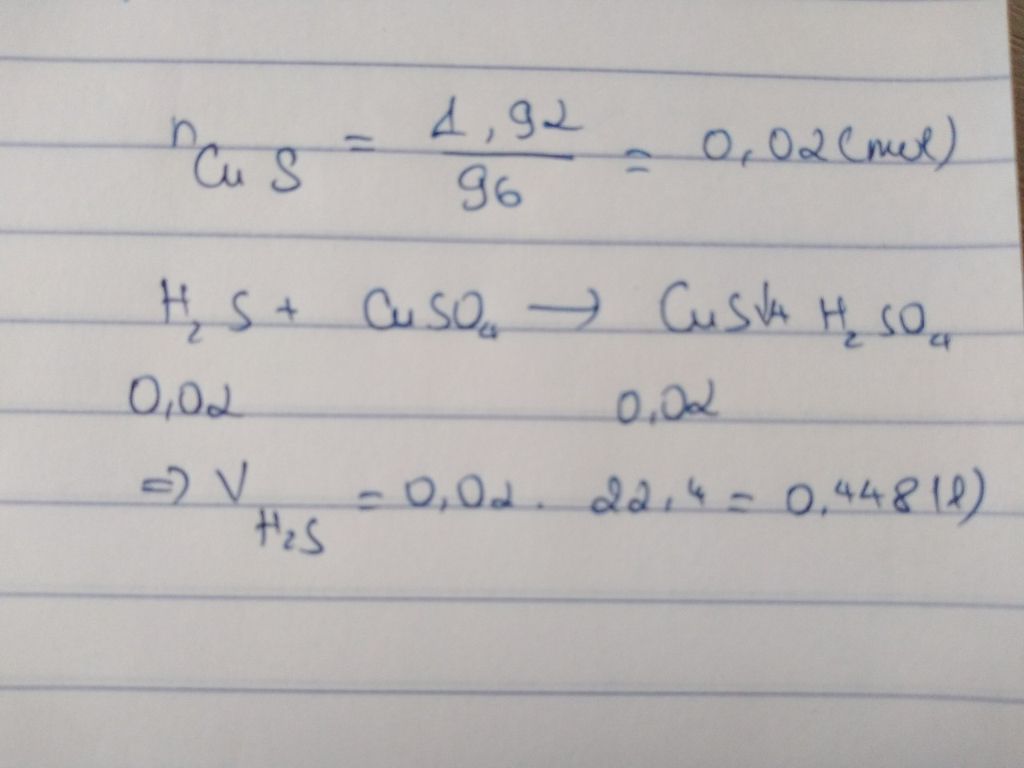 nCuS = 1,92/96 = 0,02 (mol)
H₂S + CuSO₄ → CuS↓ + H₂SO₄
0,02 0,02
⇒ V H₂S = 0,02 . 22,4 = 0,448 (l)